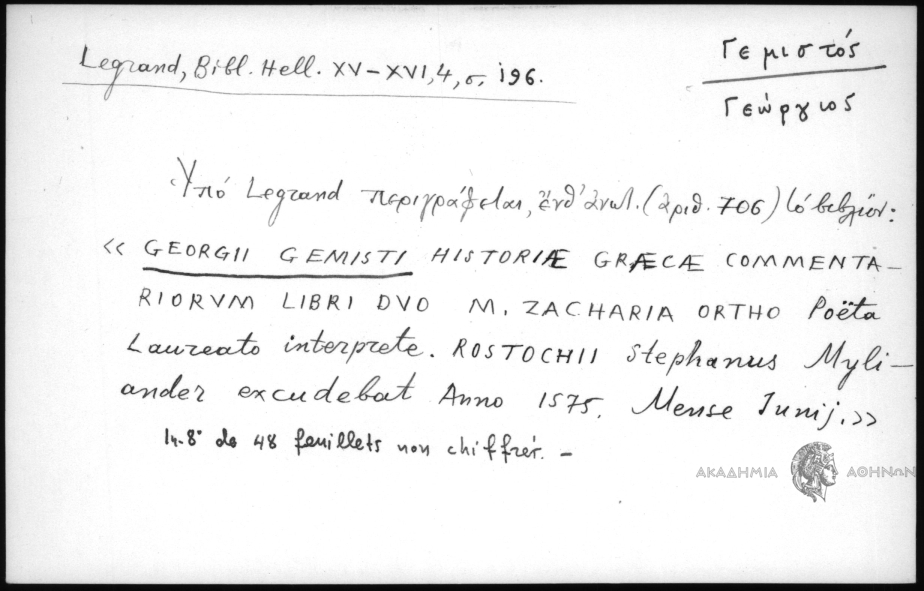 Legrand, Bibl. Hell. XV–XVI, 4, σ. 196.
Γεμιστός
Γεώργιος
Ὑπό Legrand περιγράφεται, ἔνθ' ἀνωτ. (ἀριθ. 706) τό βιβλίον:
« GEORGII GEMISTI HISTORIÆ GRÆCÆ COMMENTA–
RIORVM LIBRI DVO M. ZACHARIA ORTHO Poëta
Laureato interprete. ROSTOCHII Stephanus Myli–
ander excudebat Anno 1575. Mense Junij.»
In-8° de 48 feuillets non chiffrés. –
ΑΚΑΔΗΜΙΑ ΑΘΗΝΩΝ